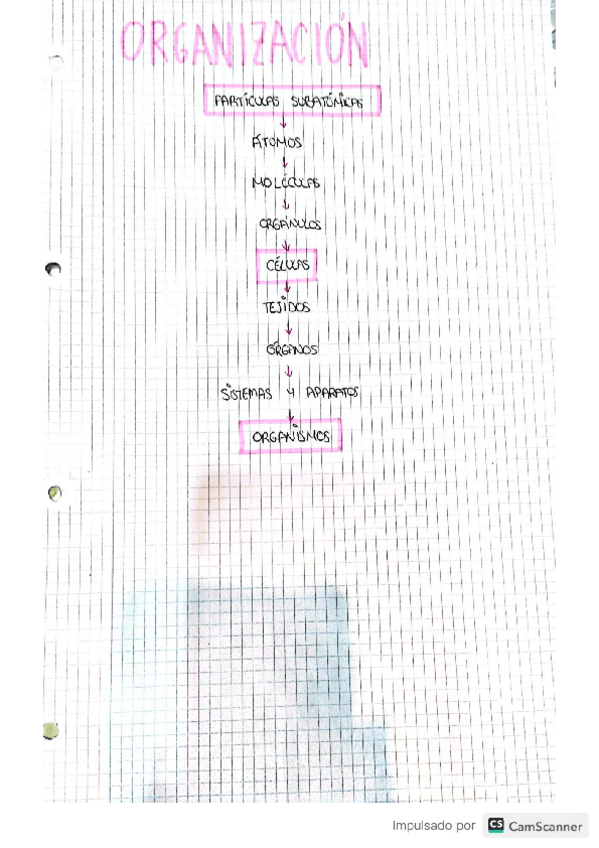 ORGANIZACIÓN
PARTÍCULAS SUBATÓMICAS
ÁTOMOS
MOLÉCULAS
ORGÁNULOS
CÉLULAS
TEJIDOS
ÓRGANOS
SISTEMAS Y APARATOS
ORGANISMOS
Impulsado por CS CamScanner